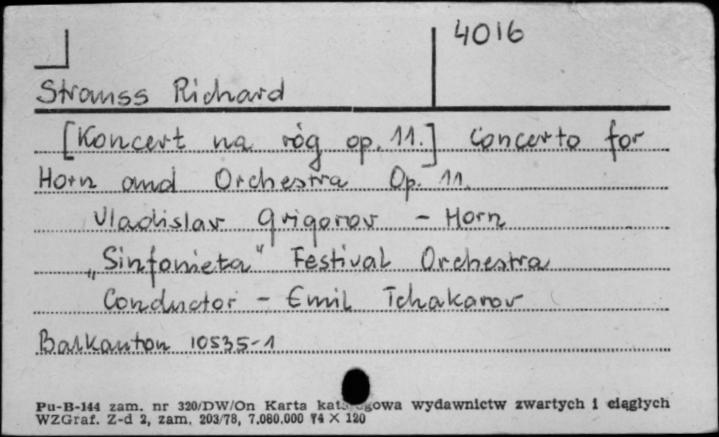 4016
Strauss Richard
[Koncert na róg op. 11.] Concerto for
Horn and Orchestra Op. 11.
Vladislav Grigorov - Horn
„Sinfonieta" Festival Orchestra
Conductor - Emil Tchakarov
Balkanton 10535-1
Pu-B-144 zam. nr 320/DW/On Karta katalogowa wydawnictw zwartych i ciągłych
WZGraf. Z-d 2, zam. 203/78, 7.080.000 74 X 120